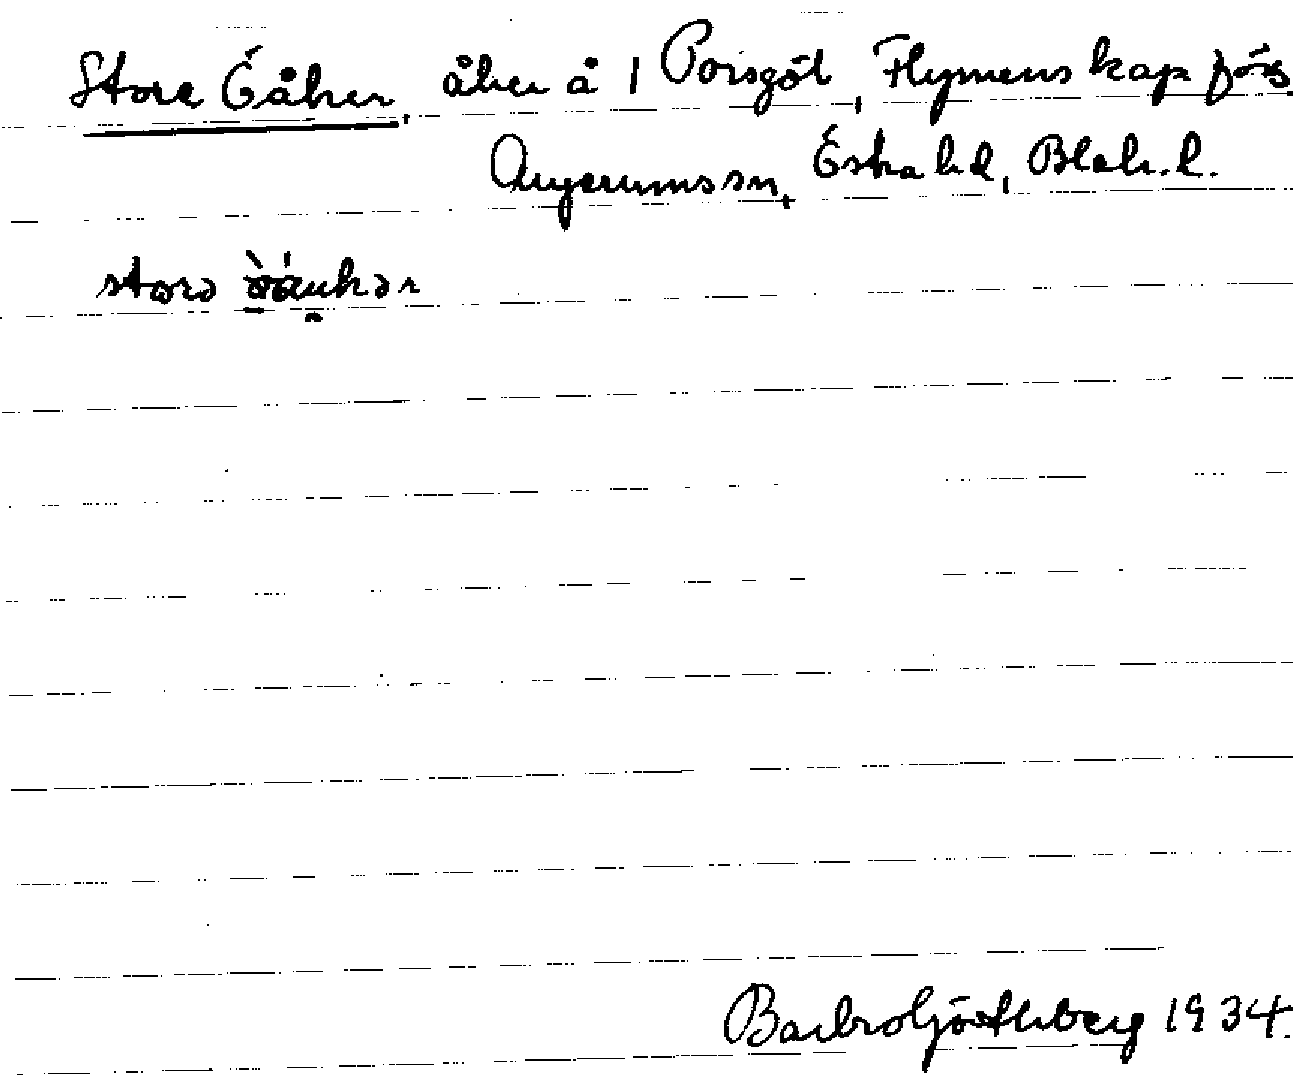 Store Öåker, åker å 1 Porsgöl, Flymens kap förs.
Augerums sn, Östra hd, Blek. l.
storə
Barbro Götherberg 1934.